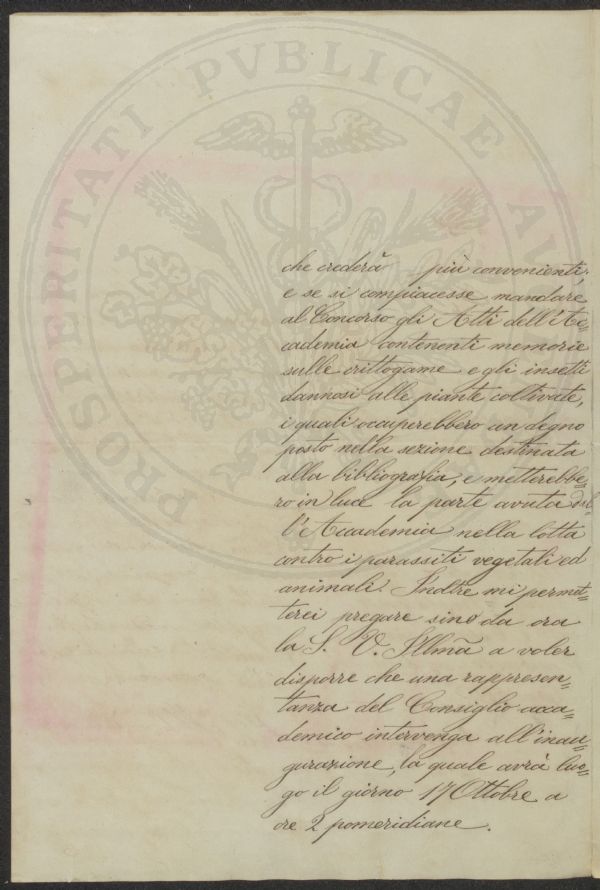 PROSPERITATI PVBLICAE AV
che crederà più convenienti;
e se si compiacesse mandare
al Concorso gli Atti dell'Ac=
cademia contenenti memorie
sulle crittogame e gli insetti
dannosi alle piante coltivate,
i quali occuperebbero un degno
posto nella sezione destinata
alla bibliografia, e metterebbe=
ro in luce la parte avuta dal=
l'Accademia nella lotta
contro i parassiti vegetali ed
animali. Inoltre mi permet=
terei pregare sino da ora
la S. V. Illmã a voler
disporre che una rappresen=
tanza del Consiglio acca=
demico intervenga all'inau=
gurazione, la quale avrà luo=
go il giorno 17 Ottobre a
ore 2 pomeridiane.